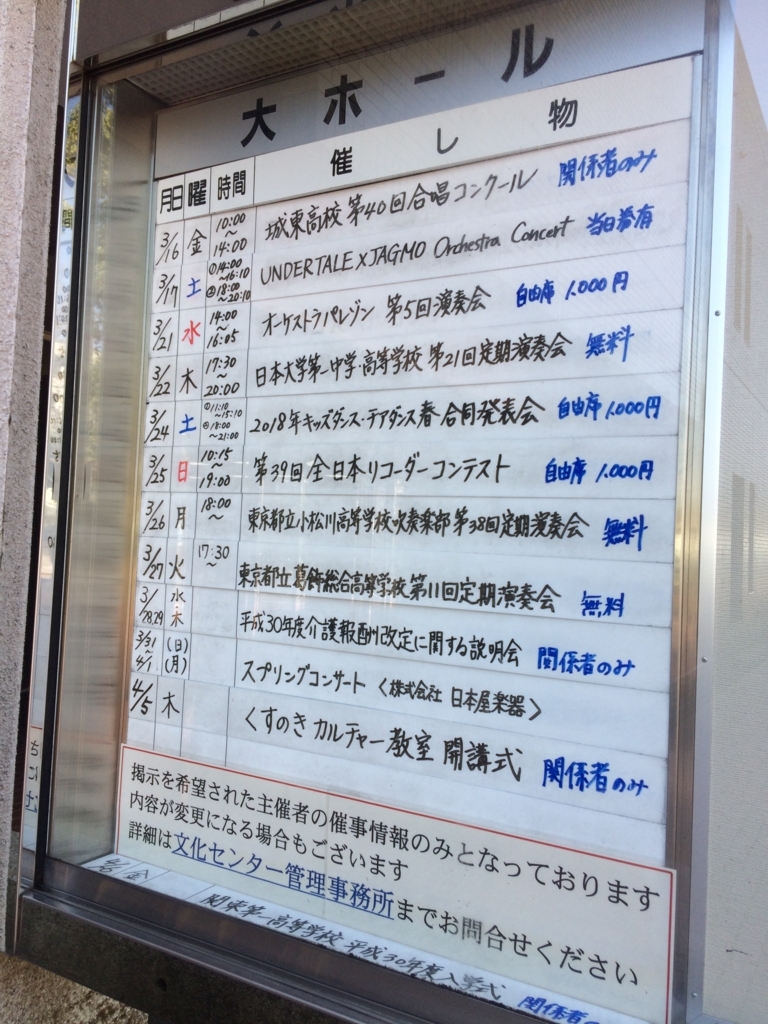 大ホール
月日 曜 時間 催し物
3/16 金 10:00～14:00 城東高校 第40回合唱コンクール 関係者のみ
3/17 土 ①14:00～16:10 ②18:00～20:10 UNDERTALE×JAGMO Orchestra Concert 当日券有
3/21 水 14:00～16:05 オーケストラパレゾン 第5回演奏会 自由席 1,000円
3/22 木 17:30～20:00 日本大学第一中学・高等学校 第21回定期演奏会 無料
3/24 土 ①11:10～15:10 ②18:00～21:00 2018年キッズダンス・チアダンス春・合同発表会 自由席 1,000円
3/25 日 10:15～19:00 第39回 全日本リコーダーコンテスト 自由席 1,000円
3/26 月 18:00～ 東京都立小松川高等学校吹奏楽部 第38回定期演奏会 無料
3/27 火 17:30 東京都立葛飾総合高等学校 第11回定期演奏会 無料
3/28.29 水木 平成30年度介護報酬改定に関する説明会 関係者のみ
3/31～4/1 (日)(月) スプリングコンサート〈株式会社 日本屋楽器〉
4/5 木 くすのきカルチャー教室 開講式 関係者のみ
掲示を希望された主催者の催事情報のみとなっております
内容が変更になる場合もございます
詳細は文化センター管理事務所までお問合せください
(金) 関東第一高等学校 平成30年度入学式 関係者